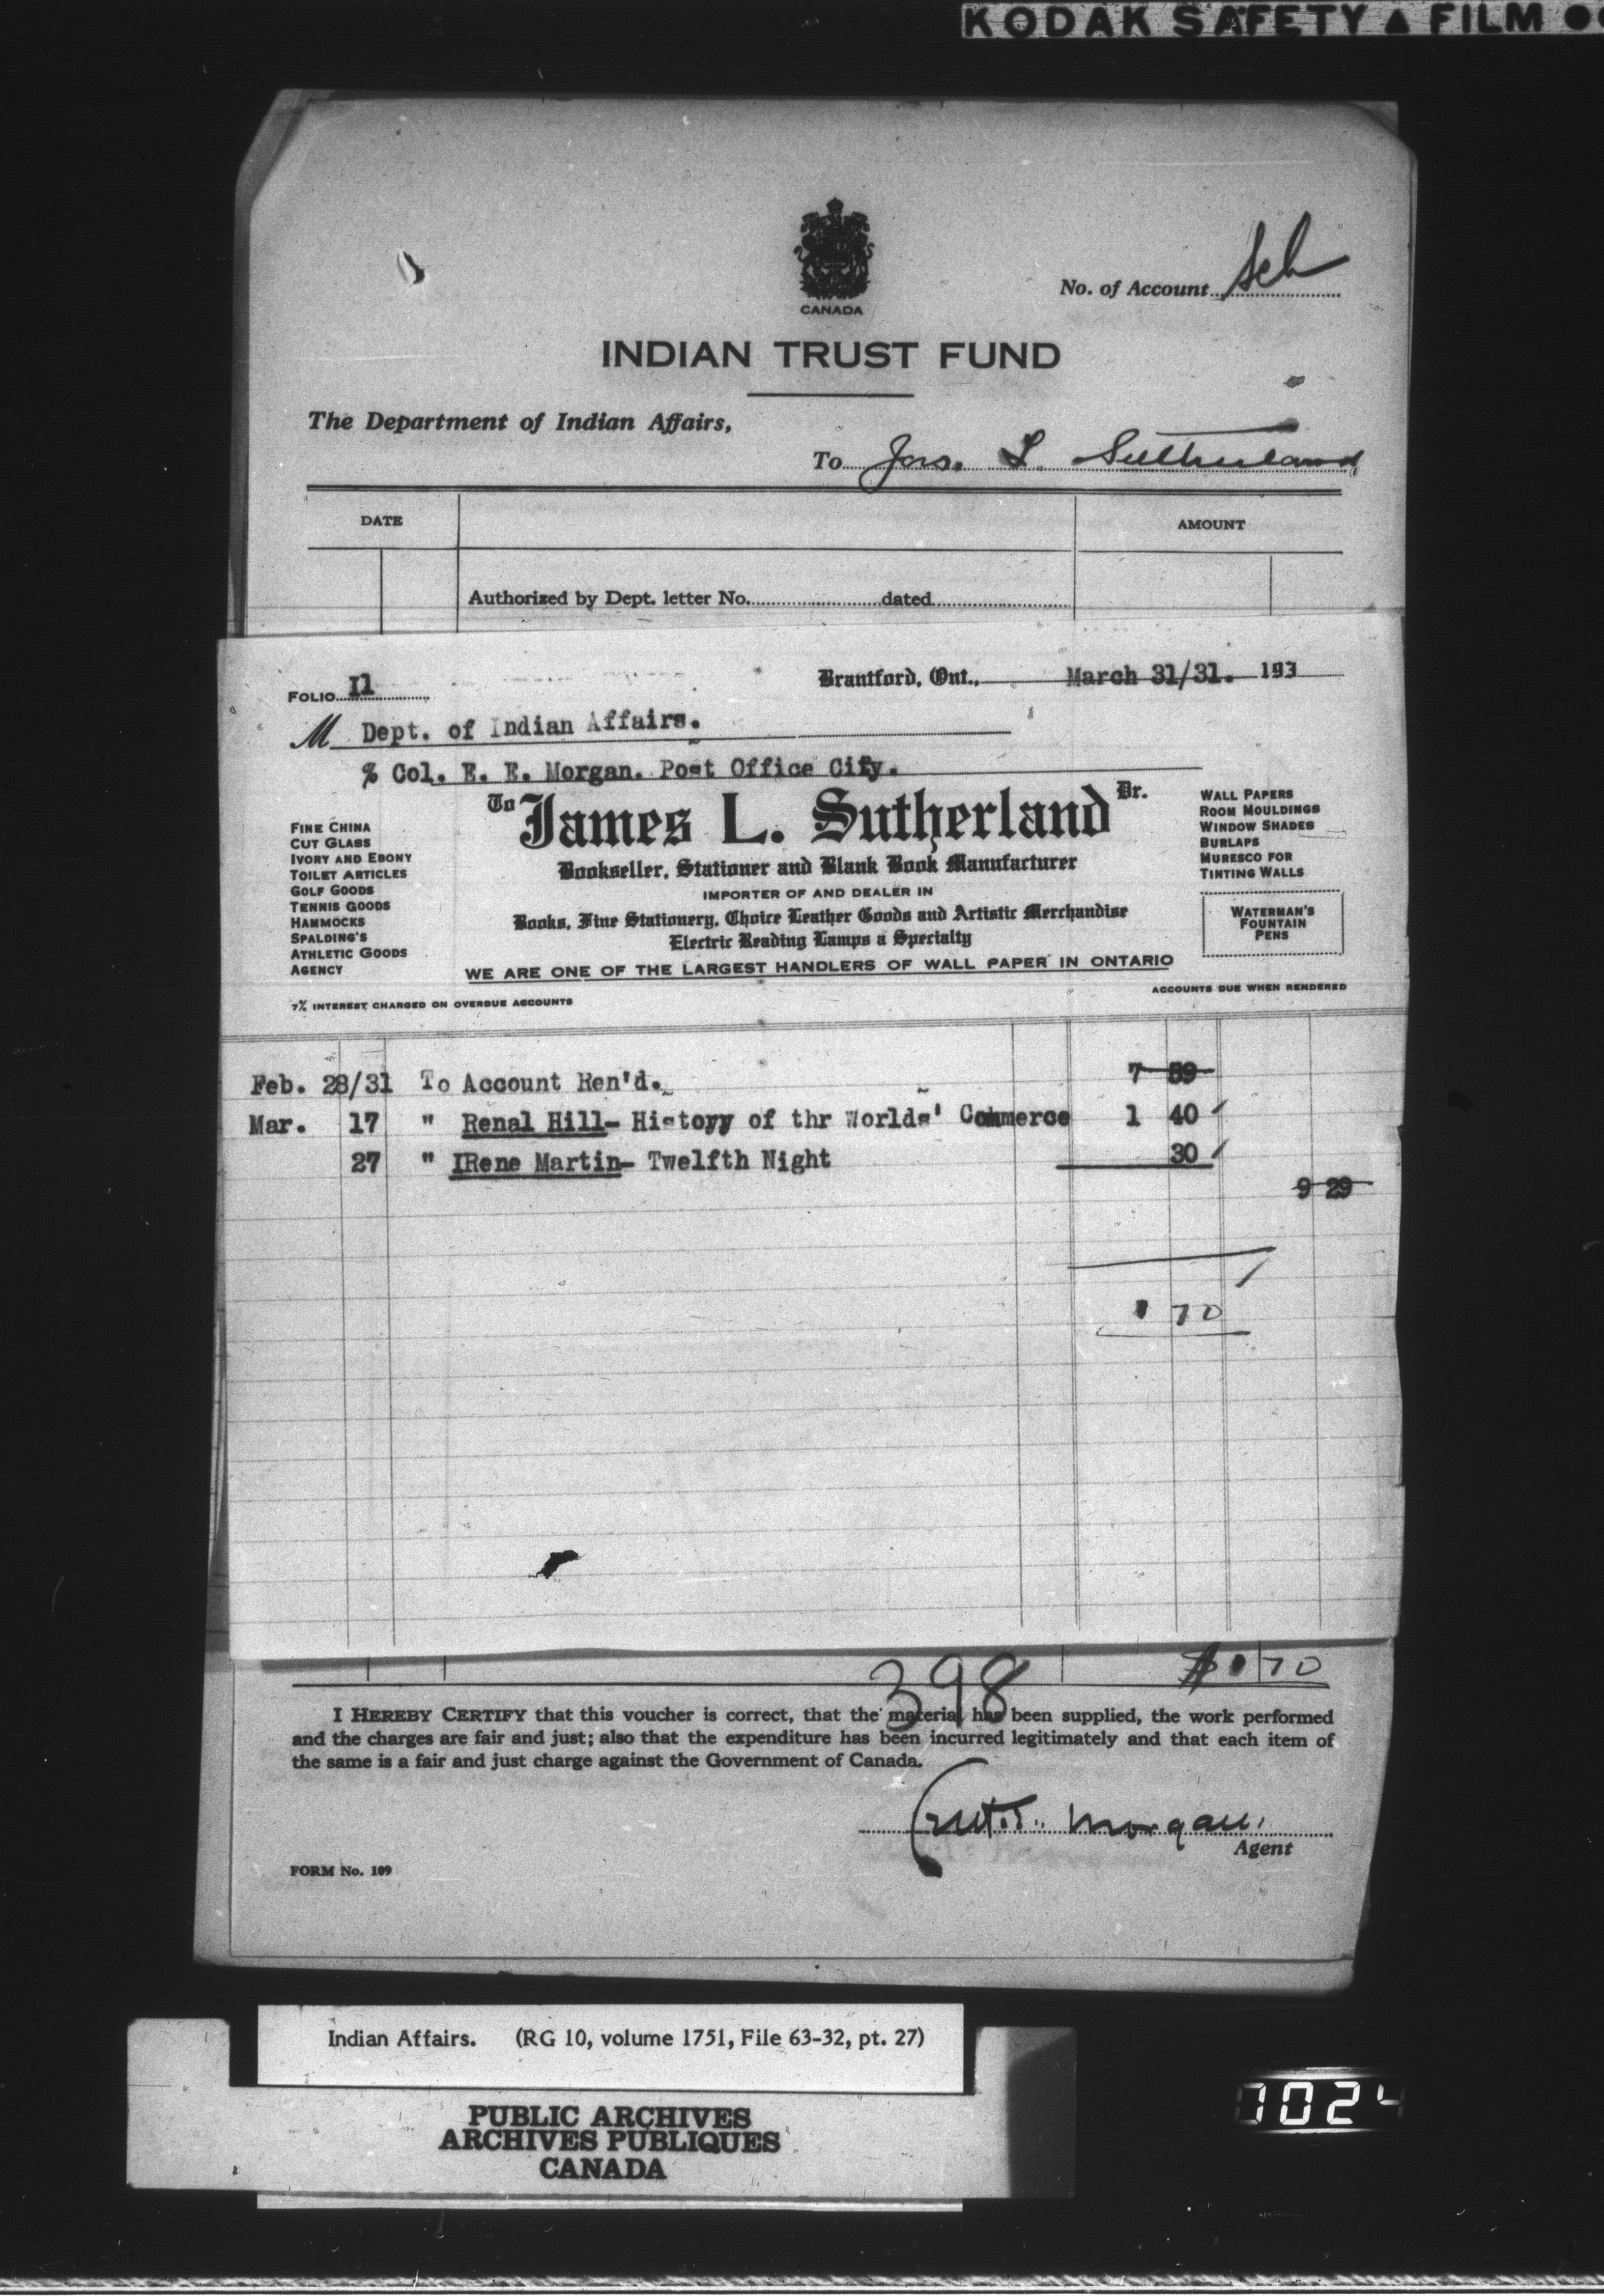 KODAK SAFETY ▲ FILM
CANADA
No. of Account Sch
INDIAN TRUST FUND
The Department of Indian Affairs,
To Jas. L. Sutherland
DATE
AMOUNT
Authorized by Dept. letter No. dated
FOLIO I1
Brantford, Ont., March 31/31. 193
M Dept. of Indian Affairs.
% Col. E. E. Morgan. Post Office City.
To James L. Sutherland Dr.
Bookseller, Stationer and Blank Book Manufacturer
IMPORTER OF AND DEALER IN
Books, Fine Stationery, Choice Leather Goods and Artistic Merchandise
Electric Reading Lamps a Specialty
WE ARE ONE OF THE LARGEST HANDLERS OF WALL PAPER IN ONTARIO
FINE CHINA
CUT GLASS
IVORY AND EBONY
TOILET ARTICLES
GOLF GOODS
TENNIS GOODS
HAMMOCKS
SPALDING'S
ATHLETIC GOODS
AGENCY
WALL PAPERS
ROOM MOULDINGS
WINDOW SHADES
BURLAPS
MURESCO FOR
TINTING WALLS
WATERMAN'S
FOUNTAIN
PENS
7% INTEREST CHARGED ON OVERDUE ACCOUNTS
ACCOUNTS DUE WHEN RENDERED
Feb. 28/31 To Account Ren'd. 7 59
Mar. 17 " Renal Hill- History of thr Worlds' Commerce 1 40
27 " IRene Martin- Twelfth Night 30
9 29
1 70
398
$1 70
I HEREBY CERTIFY that this voucher is correct, that the material has been supplied, the work performed
and the charges are fair and just; also that the expenditure has been incurred legitimately and that each item of
the same is a fair and just charge against the Government of Canada.
Morgan.
Agent
FORM No. 109
Indian Affairs. (RG 10, volume 1751, File 63-32, pt. 27)
PUBLIC ARCHIVES
ARCHIVES PUBLIQUES
CANADA
1024